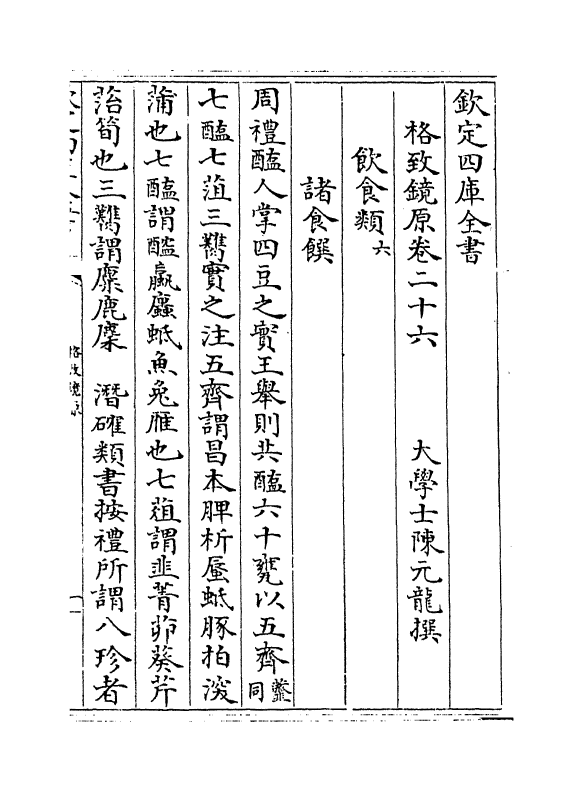 欽定四庫全書
格致鏡原卷二十六 大學士陳元龍撰
飲食類六
諸食饌
周禮醢人掌四豆之實王舉則共醢六十罋以五齊齏同
七醢七菹三臡實之注五齊謂昌本脾析蜃蚳豚拍深
蒲也七醢謂醓蠃蠯蚳魚兔雁也七菹謂韭菁茆葵芹
菭筍也三臡謂麋鹿麇 潛確類書按禮所謂八珍者
格致鏡原
一